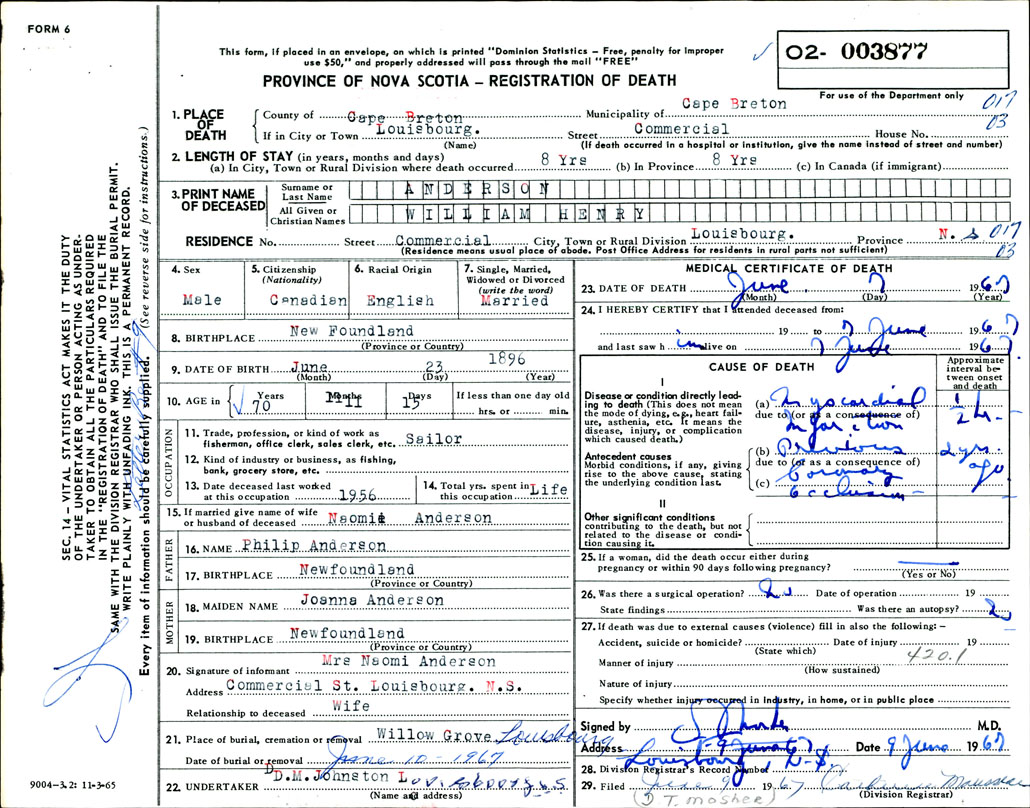 FORM 6
This form, if placed in an envelope, on which is printed "Dominion Statistics – Free, penalty for improper
use $50," and properly addressed will pass through the mail "FREE"
O2- 003877
PROVINCE OF NOVA SCOTIA – REGISTRATION OF DEATH
For use of the Department only
017
03
1. PLACE OF DEATH
County of Cape Breton Municipality of Cape Breton
If in City or Town Louisbourg. Street Commercial House No.
(Name) (If death occurred in a hospital or institution, give the name instead of street and number)
2. LENGTH OF STAY (in years, months and days)
(a) In City, Town or Rural Division where death occurred 8 Yrs (b) In Province 8 Yrs (c) In Canada (if immigrant)
3. PRINT NAME OF DECEASED
Surname or Last Name ANDERSON
All Given or Christian Names WILLIAM HENRY
RESIDENCE No. Street Commercial City, Town or Rural Division Louisbourg. Province N. S 017
(Residence means usual place of abode. Post Office Address for residents in rural parts not sufficient) 03
4. Sex
Male
5. Citizenship
(Nationality)
Canadian
6. Racial Origin
English
7. Single, Married,
Widowed or Divorced
(write the word)
Married
8. BIRTHPLACE New Foundland
(Province or Country)
9. DATE OF BIRTH June 23 1896
(Month) (Day) (Year)
10. AGE in Years Months Days If less than one day old
70 11 15 hrs. or min.
OCCUPATION
11. Trade, profession, or kind of work as
fisherman, office clerk, sales clerk, etc. Sailor
12. Kind of industry or business, as fishing,
bank, grocery store, etc.
13. Date deceased last worked
at this occupation 1956
14. Total yrs. spent in
this occupation Life
15. If married give name of wife
or husband of deceased Naomi Anderson
FATHER
16. NAME Philip Anderson
17. BIRTHPLACE Newfoundland
(Province or Country)
MOTHER
18. MAIDEN NAME Joanna Anderson
19. BIRTHPLACE Newfoundland
(Province or Country)
20. Signature of informant Mrs Naomi Anderson
Address Commercial St. Louisbourg. N.S.
Relationship to deceased Wife
21. Place of burial, cremation or removal Willow Grove Louisbourg
Date of burial or removal June 10 - 1967
22. UNDERTAKER D.M.Johnston Louisbourg N.S.
(Name and address)
MEDICAL CERTIFICATE OF DEATH
23. DATE OF DEATH June 7 1967
(Month) (Day) (Year)
24. I HEREBY CERTIFY that I attended deceased from:
19 to 7 June 1967
and last saw him alive on 7 June 1967
CAUSE OF DEATH
Approximate
interval be-
tween onset
and death
I
Disease or condition directly lead-
ing to death (This does not mean
the mode of dying, e.g., heart fail-
ure, asthenia, etc. It means the
disease, injury, or complication
which caused death.)
(a) Myocardial 1/2 hr-
due to (or as a consequence of)
Infarction
Antecedent causes
Morbid conditions, if any, giving
rise to the above cause, stating
the underlying condition last.
(b) Previous 2 yrs.
due to (or as a consequence of) ago
(c) Coronary
occlusion -
II
Other significant conditions
contributing to the death, but not
related to the disease or condi-
tion causing it.
25. If a woman, did the death occur either during
pregnancy or within 90 days following pregnancy?
(Yes or No)
26. Was there a surgical operation? No Date of operation 19
State findings Was there an autopsy? No
27. If death was due to external causes (violence) fill in also the following: –
Accident, suicide or homicide? Date of injury 19
(State which)
Manner of injury 420.1
(How sustained)
Nature of injury
Specify whether injury occurred in industry, in home, or in public place
Signed by M.D.
Address Louisbourg, N-S- Date 9 June 1967
28. Division Registrar's Record Number
29. Filed June 9 1967
(Division Registrar)
T. Mosher
SEC. 14 – VITAL STATISTICS ACT MAKES IT THE DUTY
OF THE UNDERTAKER OR PERSON ACTING AS UNDER-
TAKER TO OBTAIN ALL THE PARTICULARS REQUIRED
IN THE "REGISTRATION OF DEATH" AND TO FILE THE
SAME WITH THE DIVISION REGISTRAR WHO SHALL ISSUE THE BURIAL PERMIT.
WRITE PLAINLY WITH UNFADING INK. THIS IS A PERMANENT RECORD.
Every item of information should be carefully supplied. (See reverse side for instructions.)
9004–3.2: 11-3-65